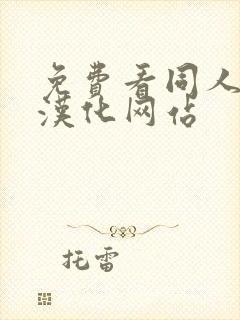 免費看同人
漢化网站
托雷